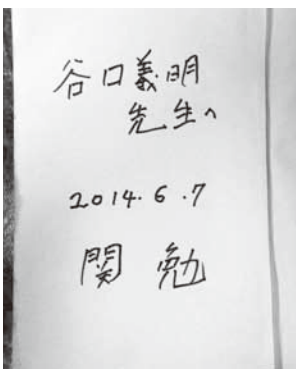 谷口義明
先生へ
2014.6.7
関勉